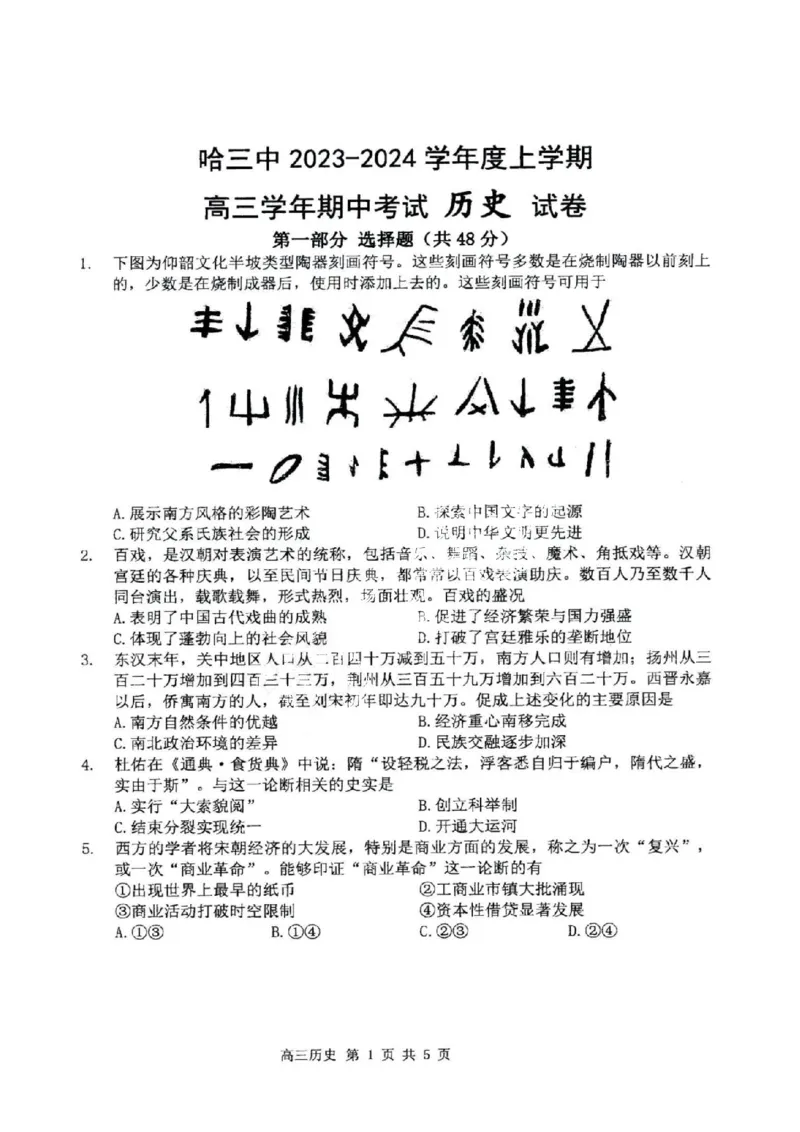 哈三中 2023-2024 学年度上学期
高三学年期中考试 历史 试卷
第一部分 选择题（共 48 分）
1. 下图为仰韶文化半坡类型陶器刻画符号。这些刻画符号多数是在烧制陶器以前刻上
的，少数是在烧制成器后，使用时添加上去的。这些刻画符号可用于
A. 展示南方风格的彩陶艺术 B. 探索中国文字的起源
C. 研究父系氏族社会的形成 D. 说明中华文明更先进
2. 百戏，是汉朝对表演艺术的统称，包括音乐、舞蹈、杂技、魔术、角抵戏等。汉朝
宫廷的各种庆典，以至民间节日庆典，都常常以百戏表演助庆。数百人乃至数千人
同台演出，载歌载舞，形式热烈，场面壮观。百戏的盛况
A. 表明了中国古代戏曲的成熟 B. 促进了经济繁荣与国力强盛
C. 体现了蓬勃向上的社会风貌 D. 打破了宫廷雅乐的垄断地位
3. 东汉末年，关中地区人口从二百四十万减到五十万，南方人口则有增加；扬州从三
百二十万增加到四百三十三万，荆州从三百五十九万增加到六百二十万。西晋永嘉
以后，侨寓南方的人，截至刘宋初年即达九十万。促成上述变化的主要原因是
A. 南方自然条件的优越 B. 经济重心南移完成
C. 南北政治环境的差异 D. 民族交融逐步加深
4. 杜佑在《通典·食货典》中说：隋“设轻税之法，浮客悉自归于编户，隋代之盛，
实由于斯”。与这一论断相关的史实是
A. 实行“大索貌阅” B. 创立科举制
C. 结束分裂实现统一 D. 开通大运河
5. 西方的学者将宋朝经济的大发展，特别是商业方面的发展，称之为一次“复兴”，
或一次“商业革命”。能够印证“商业革命”这一论断的有
①出现世界上最早的纸币 ②工商业市镇大批涌现
③商业活动打破时空限制 ④资本性借贷显著发展
A. ①③ B. ①④ C. ②③ D. ②④
高三历史 第 1 页 共 5 页